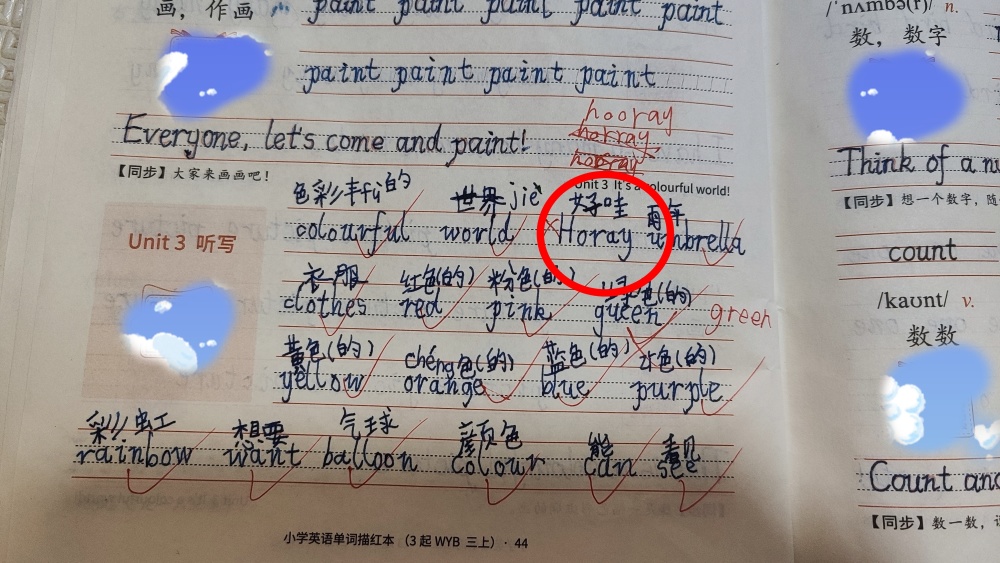 画，作画 paint paint paint paint paint
/ˈnʌmbə(r)/ n.
数，数字
paint paint paint paint
hooray
horray
hooray
Everyone, let's come and paint!
【同步】大家来画画吧！
Unit 3 It's a colourful world!
Think of a nu
【同步】想一个数字，随
Unit 3 听写
色彩丰fù的 世界jiè 好哇 雨伞
colourful world Horay umbrella
count
衣服 红色(的) 粉色(的) 绿色(的)
clothes red pink queen green
/kaʊnt/ v.
数数
黄色(的) chéng色(的) 蓝色(的) 色(的)
yellow orange blue purple
彩虹 想要 气球 颜色 能 看见
rainbow want balloon colour can see
Count and
【同步】数一数，
小学英语单词描红本（3起 WYB 三上）· 44